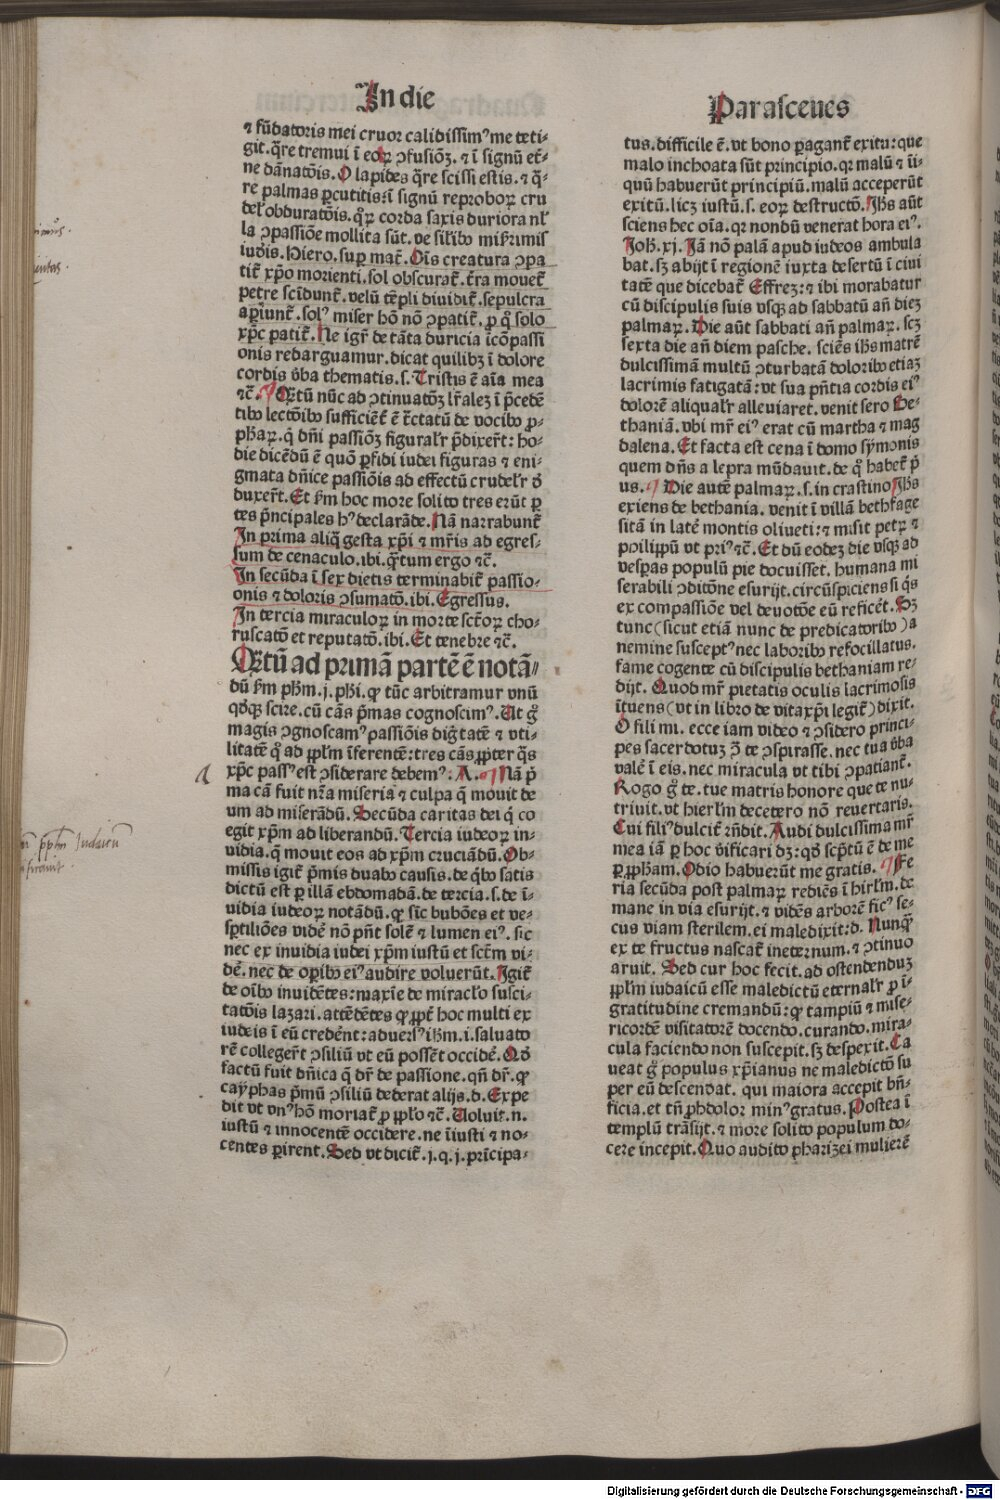 In die
Parasceues
⁊ fūdatoris mei cruor calidissimꝰ me teti-
git. q̄re tremui ī eoꝝ ↄfusiōꝫ. ⁊ ī signū et̄-
ne dānatōis. O lapides q̄re scissi estis. ⁊ q̄-
re palmas ꝑcutitis: ī signū reproboꝝ cru
del̓ obduratōis. qꝝ corda saxis duriora nł
la ↄpassiōe mollita sūt. ve sił̓ibꝰ miẜrimis
iud̓is. Hiero. suꝑ mat̄. Oīs creatura ↄpa
tit̄ xp̄o morienti. sol obscurat̄. t̄ra mouet̄
petre scīdunt̄. velū tēpli diuidit̄. sepulcra
aꝑiunt̄. solꝰ miser hō nō ↄpatit̄. ꝓ q̊ solo
xp̄c patit̄. Ne igr̄ de tāta duricia īcōpassi
onis redarguamur. dicat quilibꝫ ī dolore
cordis v̓ba thematis. s. Tristis ē aīa mea
⁊c̄. Quātū nūc ad ↄtinuatōꝫ lr̄aleꝫ ī p̄cedē
tibꝰ lectōibꝰ sufficiēt̄ ē t̄ctatū de vocibꝰ ꝓ-
phaꝝ. q̄ dn̄i passiōꝫ figuralr̄ p̄dixer̄t: ho-
die dicēdū ē quō ꝑfidi iudei figuras ⁊ eni-
gmata dn̄ice passiōis ad effectū crudelr̄ ꝺ̓
duxer̄t. Et ẜm hoc more solito tres erūt ꝑ
tes p̄ncipales hꝰ declarāde. Nā narrabunt̄
In prima aliq̄ gesta xp̄i ⁊ mr̄is ad egres-
sum de cenaculo. ibi. q̄tum ergo ⁊c̄.
In secūda ī sex dietis terminabit̄ passio-
onis ⁊ doloris ↄsumatō. ibi. Egressus.
In tercia miraculoꝝ in morte sctōꝝ cho-
ruscatō et reputatō. ibi. Et tenebre ⁊c̄.
Quātū ad primā partē ē notā-
dū ẜm ph̄m. j. ph̄i. ꝙ tūc arbitramur vnū
qd̓qꝫ scire. cū cās p̄mas cognoscimꝰ. Ut g̊
magis ↄgnoscamꝰ passiōis dig̓tatē ⁊ vti-
litatē q̊ ad ꝓpłm īferentē: tres cās ꝓpter q̄s
xp̄c passꝰ est ↄsiderare debemꝰ. A. Nā p̄
ma cā fuit nr̄a miseria ⁊ culpa q̄ mouit de
um ad miserādū. Secūda caritas dei q̄ co
egit xp̄m ad liberandū. Tercia iudeoꝝ in-
uidia. q̄ mouit eos ad xp̄m cruciādū. Ob-
missis igit̄ p̄mis duabꝰ causis. de q̄bꝰ satis
dictū est ꝑ illā ebdomadā. de tercia. s. de ī-
uidia iudeoꝝ notādū. ꝙ sīc bubōes et ve-
sꝑtiliōes vidē nō pn̄t solē ⁊ lumen eiꝰ. sic
nec ex inuidia iudei xp̄m iustū et sctm̄ vi-
dē. nec de oꝑibꝰ eiꝰ audire voluerūt. Igit̄
de oībꝰ inuidētes: maxīe de miracło susci-
tatōis lazari. attēdētes ꝙ ꝓpt̄ hoc multi ex
iudeis ī eū credēnt: aduerſꝰ ih̄m. i. saluato
rē colleger̄t ↄsiliū vt eū possēt occidē. Qd̓
factū fuit dn̄ica q̄ dr̄ de passione. qn̄ dr̄. ꝙ
cayphas p̄mū ↄsiliū dederat alijs. d. Expe
dit vt vnꝰ hō moriat̄ ꝓ ꝓpło ⁊c̄. Uoluit. n.
iustū ⁊ innocentē occidere. ne īiusti ⁊ no-
centes ꝑirent. Sed vt dicit̄. j. q. j. prīcipa-
tus. difficile ē. vt bono ꝑagant̄ exitu: que
malo inchoata sūt principio. qꝛ malū ⁊ ūi-
quū habuerūt principiū. malū acceperūt
exitū. licꝫ iustū. s. eoꝝ destructō. Ihs̄ aūt
sciens hec oīa. qꝛ nondū venerat hora eiꝰ.
Joh̄. xj. Iā nō palā apud iudeos ambula
bat. sꝫ abijt ī regionē iuxta desertū ī ciui
tatē que dicebat̄ Effreꝫ: ⁊ ibi morabatur
cū discipulis suis vsqꝫ ad sabbatū añ dieꝫ
palmaꝝ. Die aūt sabbati añ palmaꝝ. scꝫ
sexta die añ diem pasche. sciēs ihs̄ matrē
dulcissimā multū ↄturbatā doloribꝰ etiaꝫ
lacrimis fatigatā: vt sua pn̄tia cordis eiꝰ
dolorē aliqualr̄ alleuiaret. venit sero Be-
thaniā. vbi mr̄ eiꝰ erat cū martha ⁊ mag
dalena. Et facta est cena ī domo symonis
quem dn̄s a lepra mūdauit. de q̊ habet̄ p̄
us. Die autē palmaꝝ. s. in crastino Ihs̄
exiens de bethania. venit ī villā bethfage
sitā in latē montis oliueti: ⁊ misit petꝝ ⁊
philippū vt priꝰ ⁊c̄. Et dū eodeꝫ die vsqꝫ ad
vesꝑas populū pie docuisset. humana mi
serabili ↄditōne esurijt. circūspiciens si q̄s
ex compassiōe vel deuotōe eū reficēt. Sꝫ
tunc (sicut etiā nunc de predicatoribꝰ) a
nemine susceptꝰ nec laboribꝰ refocillatus.
fame cogente cū discipulis bethaniam re-
dijt. Quod mr̄ pietatis oculis lacrimosis
ītuens (vt in libro de vita xp̄i legit̄) dixit.
O fili mi. ecce iam video ⁊ ↄsidero princi-
pes sacerdotuꝫ ↄ̄ te ↄspirasse. nec tua v̓ba
valēt ī eis. nec miracula vt tibi ↄpatiant̄.
Rogo g̊ te. tue matris honore que te nu-
triuit. vt hierłm decetero nō reuertaris.
Cui filiꝰ dulcit̄ rn̄dit. Audi dulcissima mr̄
mea iā ꝑ hoc v̓ificari dꝫ: qd̓ sc̄ptū ē de me
ꝑ ꝓpham. Odio habuerūt me gratis. Fe
ria secūda post palmaꝝ rediēs ī hirłm. de
mane in via esurijt. ⁊ vidēs arborē ficꝰ se-
cus viam sterilem. ei maledixit: d. Nunqꝫ̄
ex te fructus nascat̄ ineternum. ⁊ ↄtinuo
aruit. Sed cur hoc fecit. ad ostendenduꝫ
ꝓpłm iudaicū esse maledictū eternalr̄ ꝓ ī-
gratitudine cremandū: ꝙ tam piū ⁊ mise-
ricordē visitatorē docendo. curando. mira-
cula faciendo non suscepit. sꝫ despexit. Ca
ueat g̊ populus xp̄ianus ne maledictō su
per eū descendat. qui maiora accepit bn̄-
ficia. et tn̄ ꝓhdolor minꝰ gratus. Postea ī
templū trāsijt. ⁊ more solito populum do-
cere incepit. Quo audito pharizei mulierē
Digitalisierung gefördert durch die Deutsche Forschungsgemeinschaft - DFG